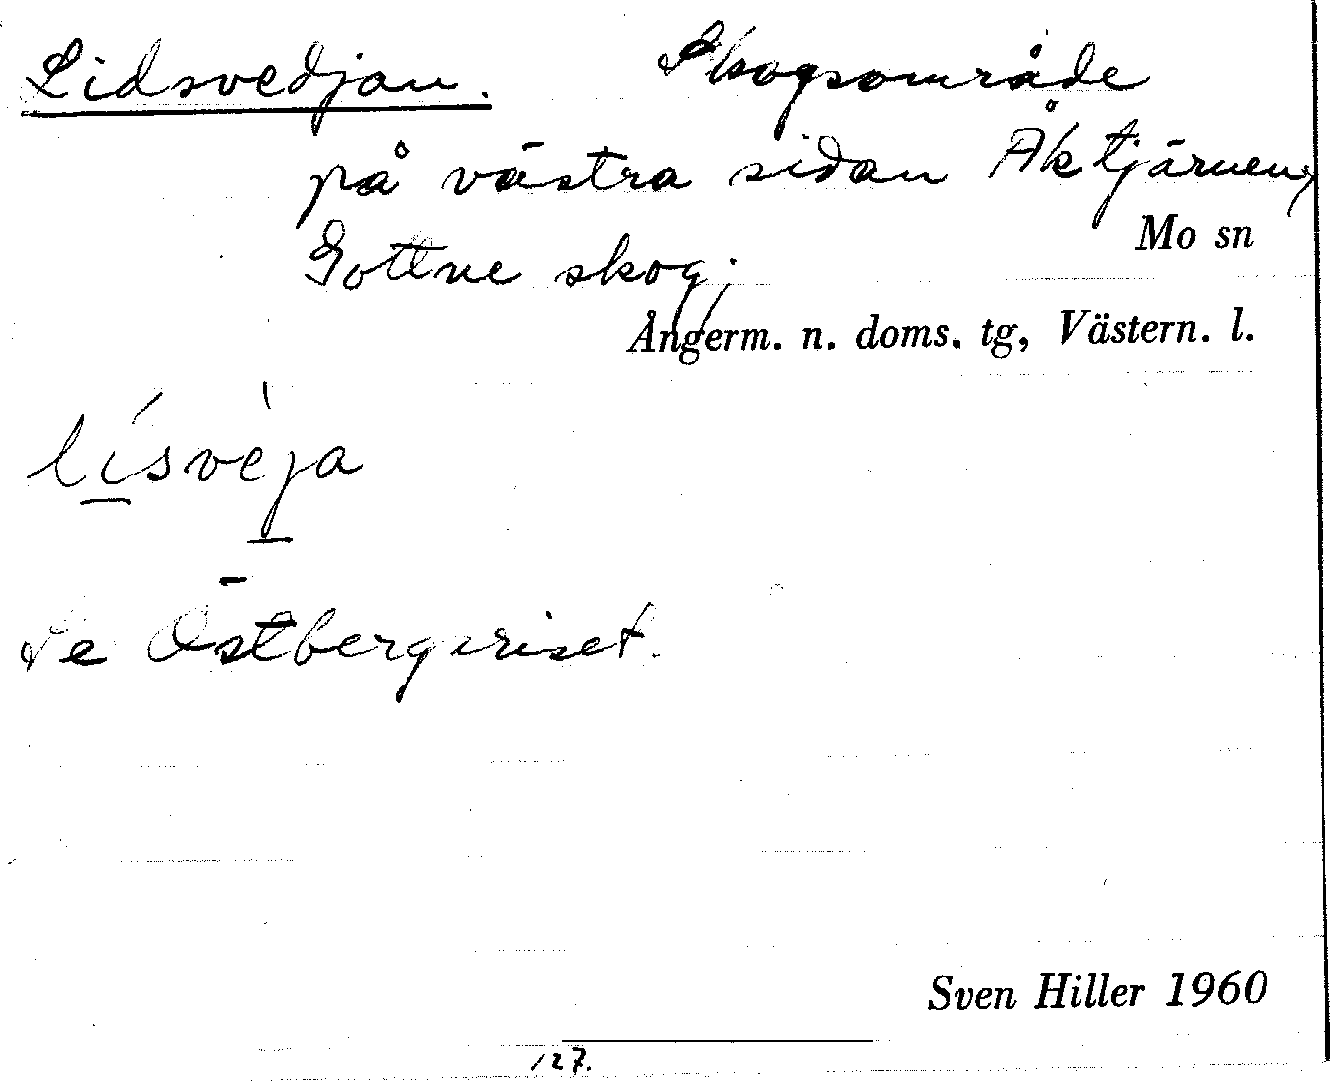 Lidsvedjan. Skogsområde
på västra sidan Åktjärnen,
Mo sn
Gottne skog.
Ångerm. n. doms. tg, Västern. l.
lísvèja
Se Östbergsriset.
Sven Hiller 1960
127.